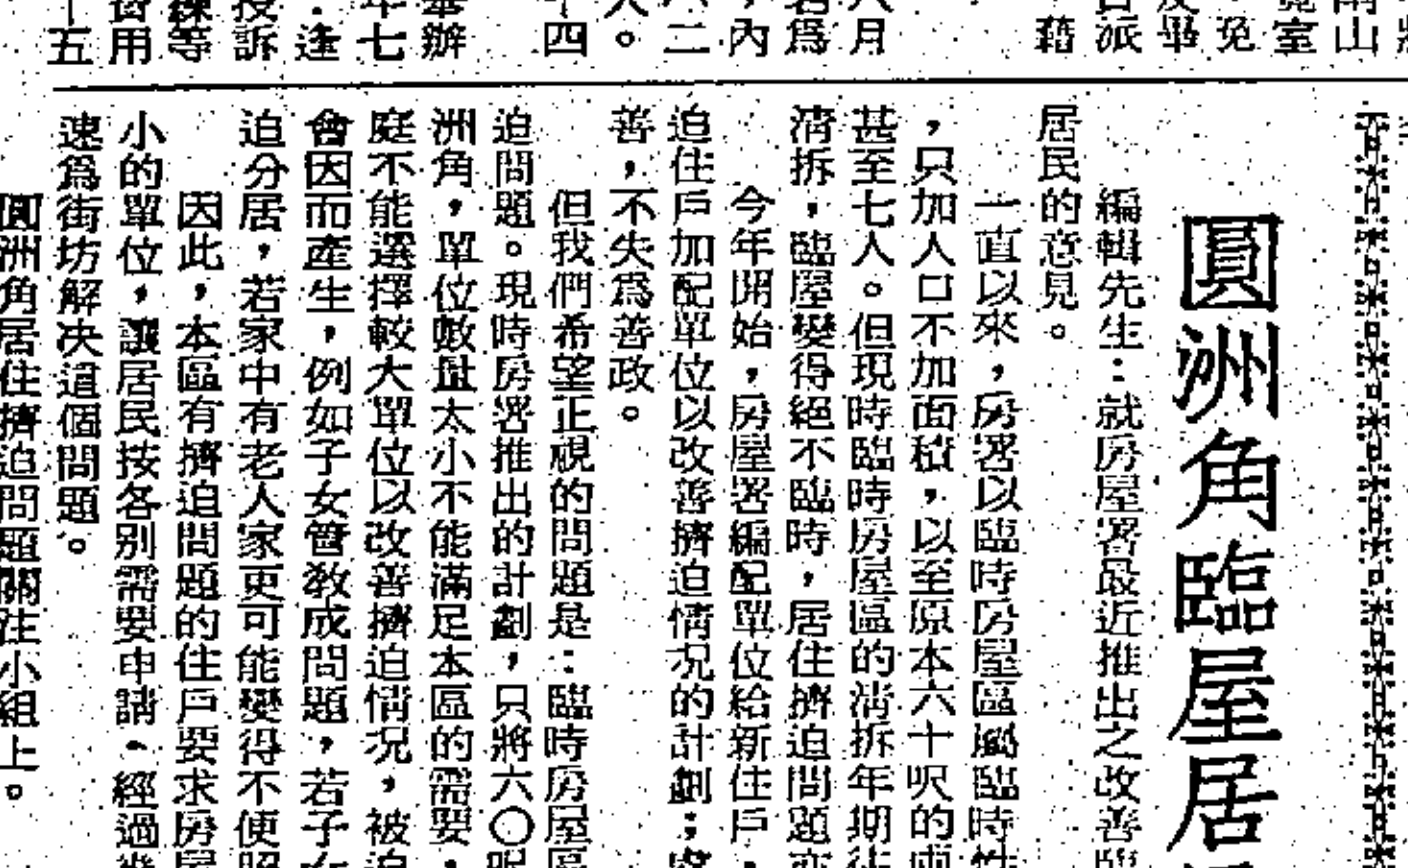 圓洲角臨屋居
編輯先生：就房屋署最近推出之改善臨
居民的意見。
一直以來，房署以臨時房屋區屬臨時性
，只加人口不加面積，以至原本六十呎的
甚至七人。但現時臨時房屋區的清拆年期
清拆，臨屋變得絕不臨時，居住擠迫問題
今年開始，房屋署編配單位給新住戶，
迫住戶加配單位以改善擠迫情況的計劃；
善，不失爲善政。
但我們希望正視的問題是：臨時房屋區
迫問題。現時房署推出的計劃，只將六〇呎
洲角，單位數量太小不能滿足本區的需要，
庭不能選擇較大單位以改善擠迫情況，被迫
會因而產生，例如子女管教成問題，若子女
迫分居，若家中有老人家更可能變得不便
因此，本區有擠迫問題的住戶要求房屋
小的單位，讓居民按各別需要申請。經過
速爲街坊解決這個問題。
圓洲角居住擠迫問題關注小組上。
藉
八月
，內
六二
人。
十四
舉辦
年七
：逢
投訴
練等
費用
十五